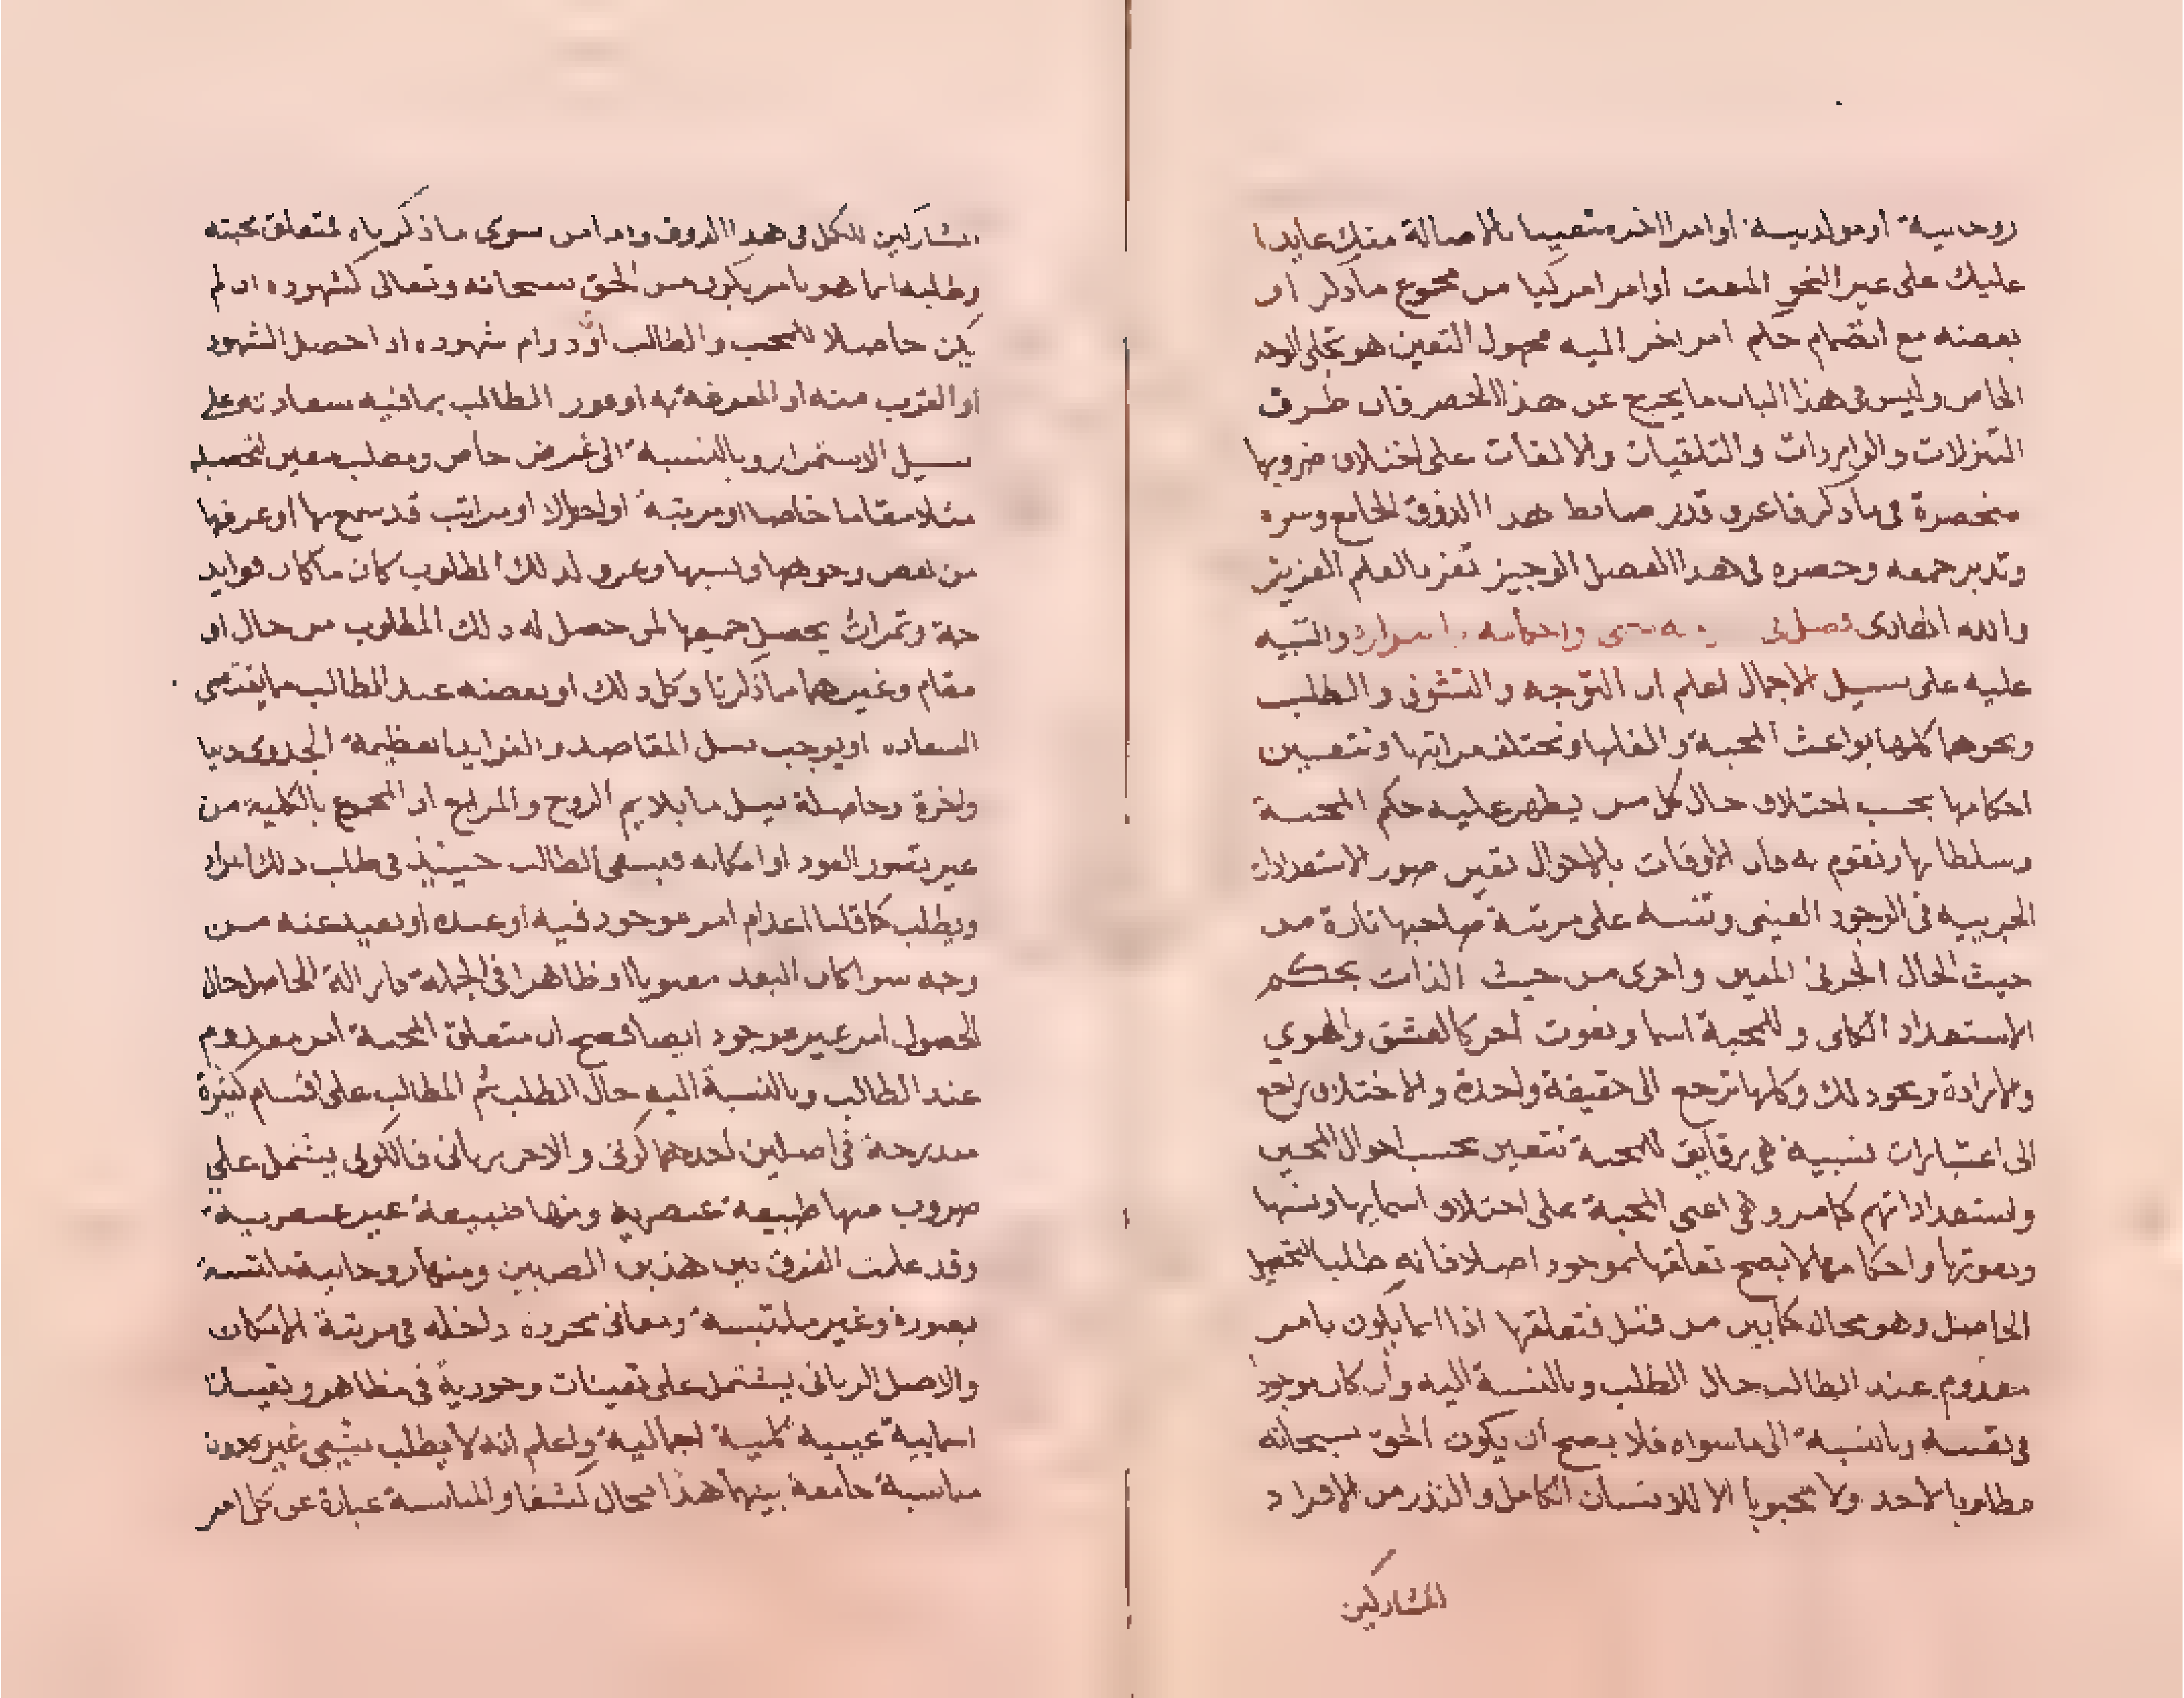 روحانية او مولدية او امرا اخر متعينا بالاصالة منك عايدا
عليك على غير النحو المنعت او امرا مركبا من مجموع ما ذكر او
بعضه مع انضمام حكم امر اخر اليه مجهول التعين هو تجلى الوجه
الخاص وليس فى هذا الباب ما يخرج عن هذا الحصر فان طرق
التنزلات والواردات والتلقيات والالقات على اختلاف ضروبها
منحصرة فى ما ذكر فاعرف قدر ضابط هذا الذوق الجامع وسره
وتدبر جمعه وحصره فى هذا الفصل الوجيز تفز بالعلم العزيز
والله الهادى فصل فى اسرار والتنبيه
عليه على سبيل الاجمال اعلم ان التوجه والتشوق والطلب
ونحوها كلها بواعث المحبة والغلبها وتختلف مراتبها وتتعين
احكامها بحسب اختلاف حال كل من يظهر عليه حكم المحبة
وسلطانها وتقوم به فان الاوقات بالاحوال تعين صور الاستعدادات
الجزيية فى الوجود العينى وتنبه على مرتبة صاحبها تارة من
حيث الحال الجزئى المعين واخرى من حيث الذات بحكم
الاستعداد الكلى وللمحبة اسما ونعوت اخر كالعشق والهوي
والارادة ونحو ذلك وكلها ترجع الى حقيقة واحدة والاختلاف راجع
الى اعتبارات نسبية هى رقايق للمحبة تتعين بحسب احوال المحبين
واستعداداتهم كما مر وهى اعنى المحبة على اختلاف اسمايها ونسبها
ونعوتها واحكامها لا يصح تعلقها بموجود اصلا فانه طلبا لتحصيل
الحاصل وهو محال كما بين من قبل فتعلقها اذا انما يكون بامر
معدوم عند الطالب حال الطلب وبالنسبة اليه وان كان موجود
فى نفسه وبالنسبة الى ما سواه فلا يصح ان يكون الحق سبحانه
مطلوبا لاحد ولا محبوبا الا للانسان الكامل والنذر من الافراد
المشاركين
المشاركين للكل فى هذا الذوق واما من سوى ما ذكرناه فمتعلق محبته
وطلبه انما هو بامر يكون من الحق سبحانه وتعالى كشهوده ان لم
يكن حاصلا للمحب والطالب او دوام شهوده اذا حصل الشهود
او القرب منه او المعرفة به او فوز الطالب بما فيه سعادته على
سبيل الاستمرار وبالنسبة الى غرض خاص ومطلب معين لتحصيله
مثلا مقاما خاصا او مرتبة او احوالا او مراتب قد سمع بها او عرفها
من بعض وجوهها ونسبها وعرف لذلك المطلوب كان ما كان فوايد
جمة وثمرات يحصل جميعها لمن حصل له ذلك المطلوب من حال او
مقام وغيرهما مما ذكرنا وكل ذلك او بعضه عند الطالب مما يقتضى
السعاده او يوجب نيل المقاصد والفوايد العظيمة الجدوى دنيا
واخرة وحاصلة نيل ما يلايم الروح والمزاج او المجموع بالكلية من
غير تصور العود او امكانه فيسعى الطالب حينيذ فى طلب ذلك المراد
ويطلب كما قلنا اعدام امر موجود فيه او عنده او بعيد عنه من
وجه سوا كان البعد معنويا او ظاهرا فى الجملة فازالة الحاصل حال
الحصول امر غير موجود ايضا فصح ان متعلق المحبة امر معدوم
عند الطالب وبالنسبة اليه حال الطلب ثم المطالب على اقسام كثيرة
مندرجة فى اصلين احدهما كونى والاخر ربانى فالكونى يشتمل علي
ضروب منها طبيعة عنصرية ومنها طبيعة غير عنصرية
وقد علمت الفرق بين هذين الضربين ومنها روحانية ملتبسة
بصورة وغير ملتبسة ومعانى مجردة داخله فى مرتبة الامكان
والاصل الربانى يشتمل على تعينات وجودية فى مظاهر وتعينات
اسمايية غيبية كلمية اجمالية واعلم انه لا يطلب شي غيره دون
مناسبة جامعة بينهما هذا محال كشفا والمناسبة عبارة عن كل امر